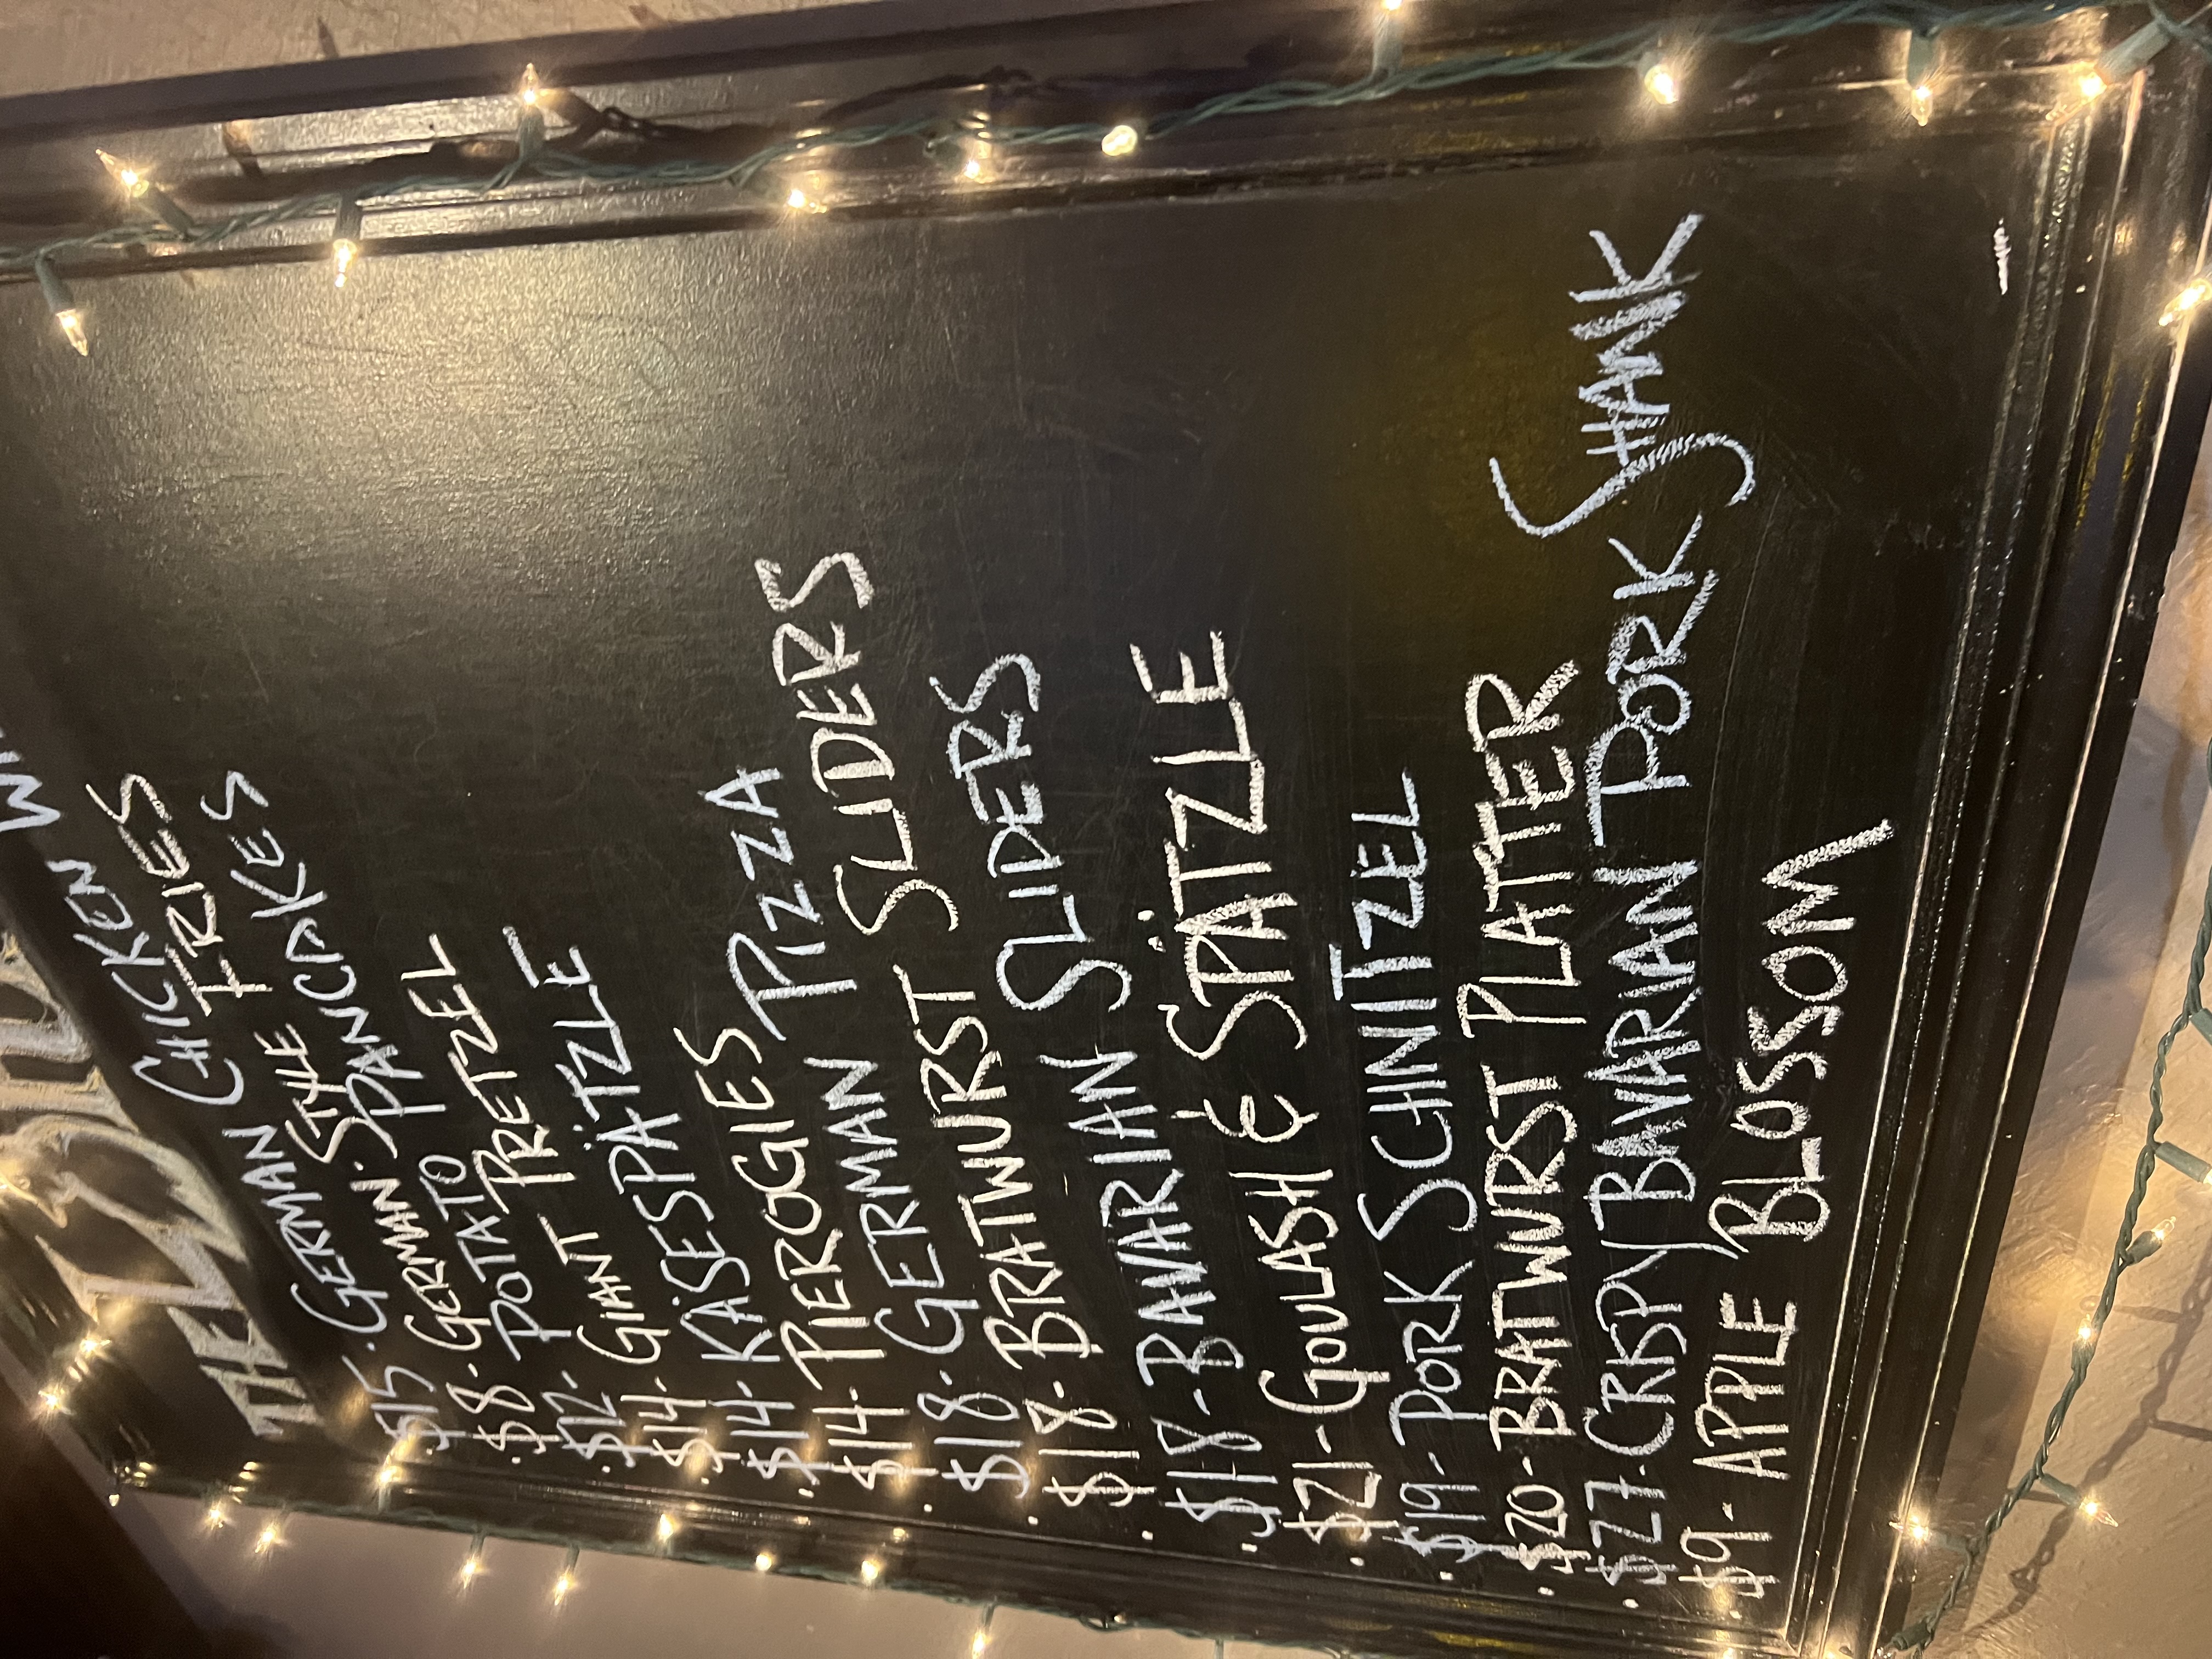 THE
$15 · GERMAN CHICKEN
· $8 · GERMAN STYLE FRIES
· $12 · POTATO PANCAKES
· $14 · GIANT PRETZEL
· $14 · KÄSESPÄTZLE
· $14 · PIEROGIES
· $18 · GERMAN PIZZA
· $18 · BRATWURST SLIDERS
· $18 - BAVARIAN SLIDERS
· $21 - GOULASH & SPÄTZLE
· $19 - PORK SCHNITZEL
· $20 - BRATWURST PLATTER
· $27 · CRISPY BAVARIAN PORK SHANK
· $9 - APPLE BLOSSOM